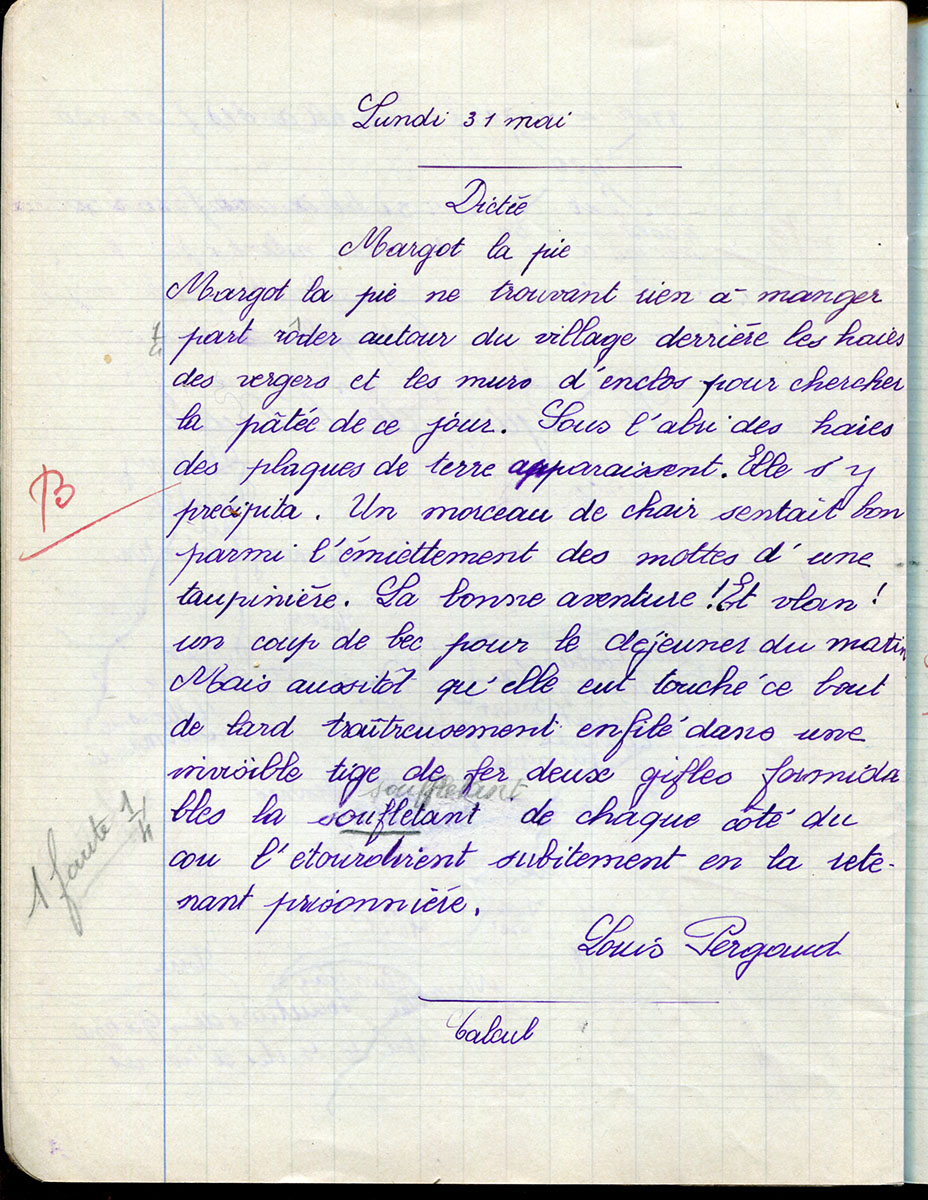 Lundi 31 mai
Dictée
Margot la pie
Margot la pie ne trouvant rien à manger
1/4 part rôder autour du village derrière les haies
des vergers et les murs d'enclos pour chercher
la pâtée de ce jour. Sous l'abri des haies
des plaques de terre apparaissent. Elle s'y
B
précipita. Un morceau de chair sentait bon
parmi l'émiettement des mottes d'une
taupinière. La bonne aventure ! Et vlan !
un coup de bec pour le déjeuner du matin
Mais aussitôt qu'elle eut touché ce bout
de lard traîtreusement enfilé dans une
invisible tige de fer deux gifles formida
souffletant
bles la souflletant de chaque côté du
1 faute 1/4
cou l'etourdirent subitement en la rete-
nant prisonnière.
Louis Pergaud
Calcul